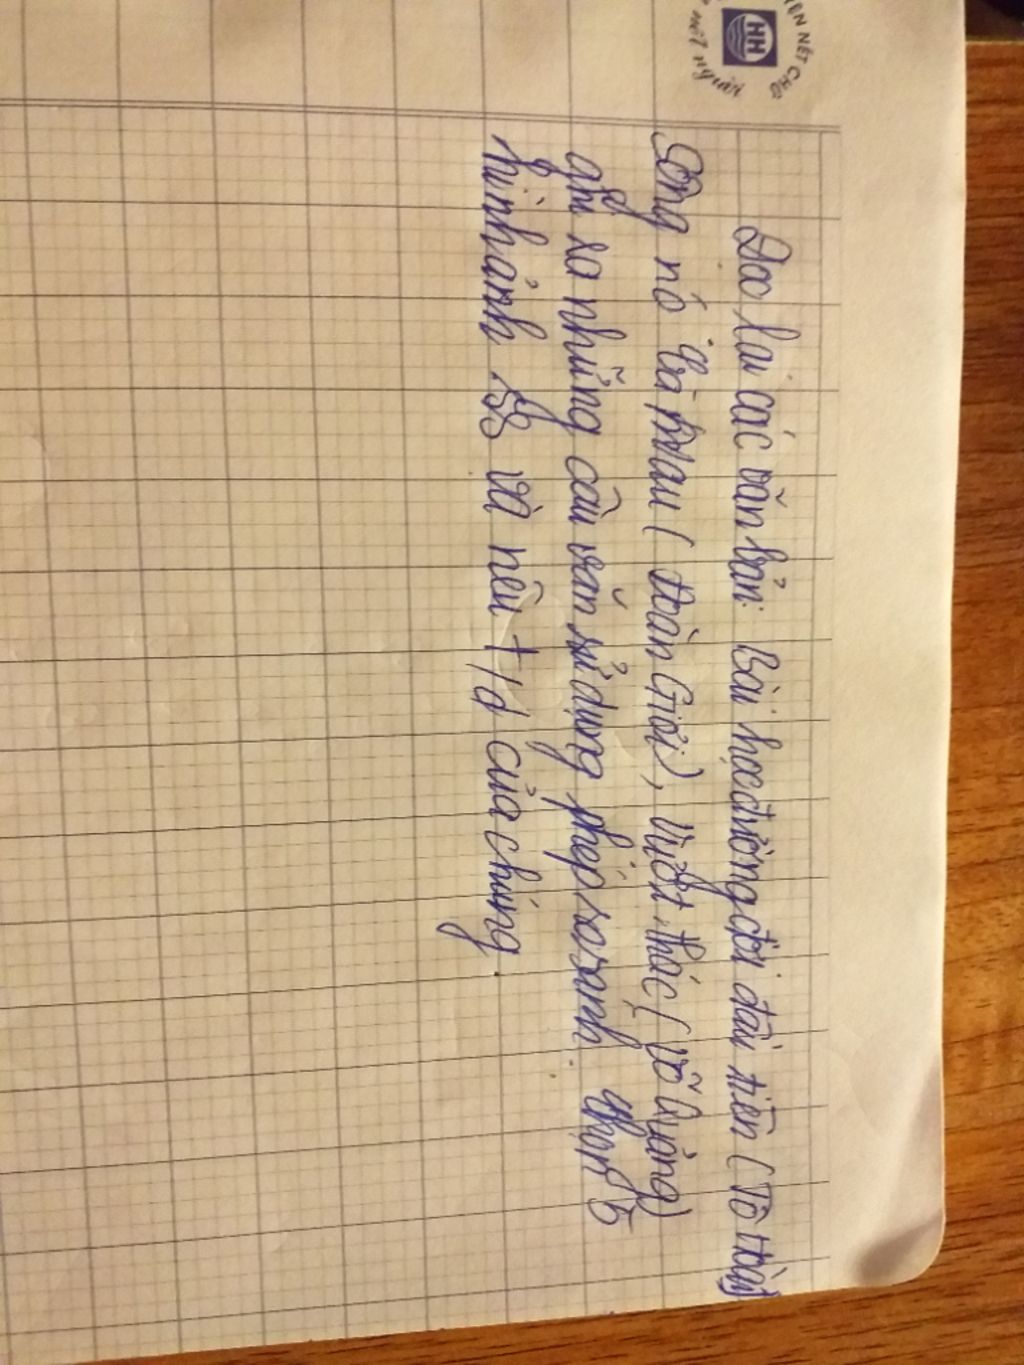 ÈN NẾT CHỮ
HH
nết người
Đọc lại các văn bản: Bài học đường đời đầu tiên (Tô Hoài)
Sông nó Cà Mau (Đoàn Giỏi), Vượt thác (Võ Quảng)
ghi ra những câu văn sử dụng phép so sánh. Chọn 5
hình ảnh SS và nêu t/d của chúng.